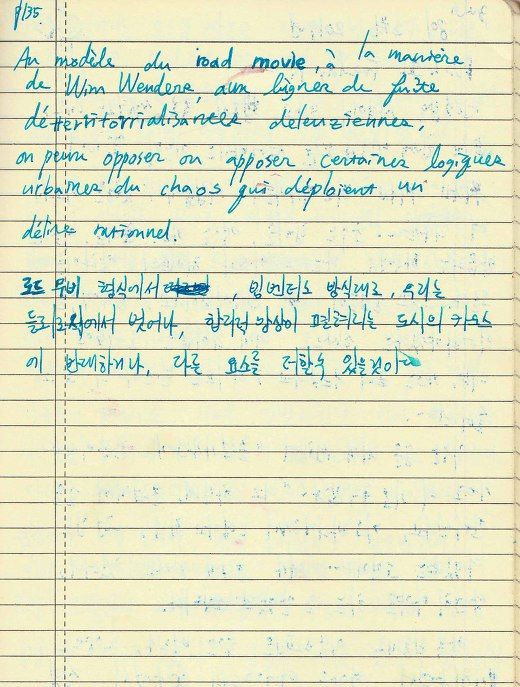 p135.
Au modèle du road movie, à la manière
de Wim Wenders, aux lignes de fuite
déterritorrialisances deleuziennes,
on peura opposer ou apposer certaines logiques
urbaines du chaos qui déploient un
délire rationnel.
로드 무비 형식에서 , 빔벤더스 방식대로, 우리는
들뢰로식에서 벗어나, 합리적 망상이 펼쳐지는 도시의 카오스
에 반대하거나, 다른 요소를 더할수 있을것이다